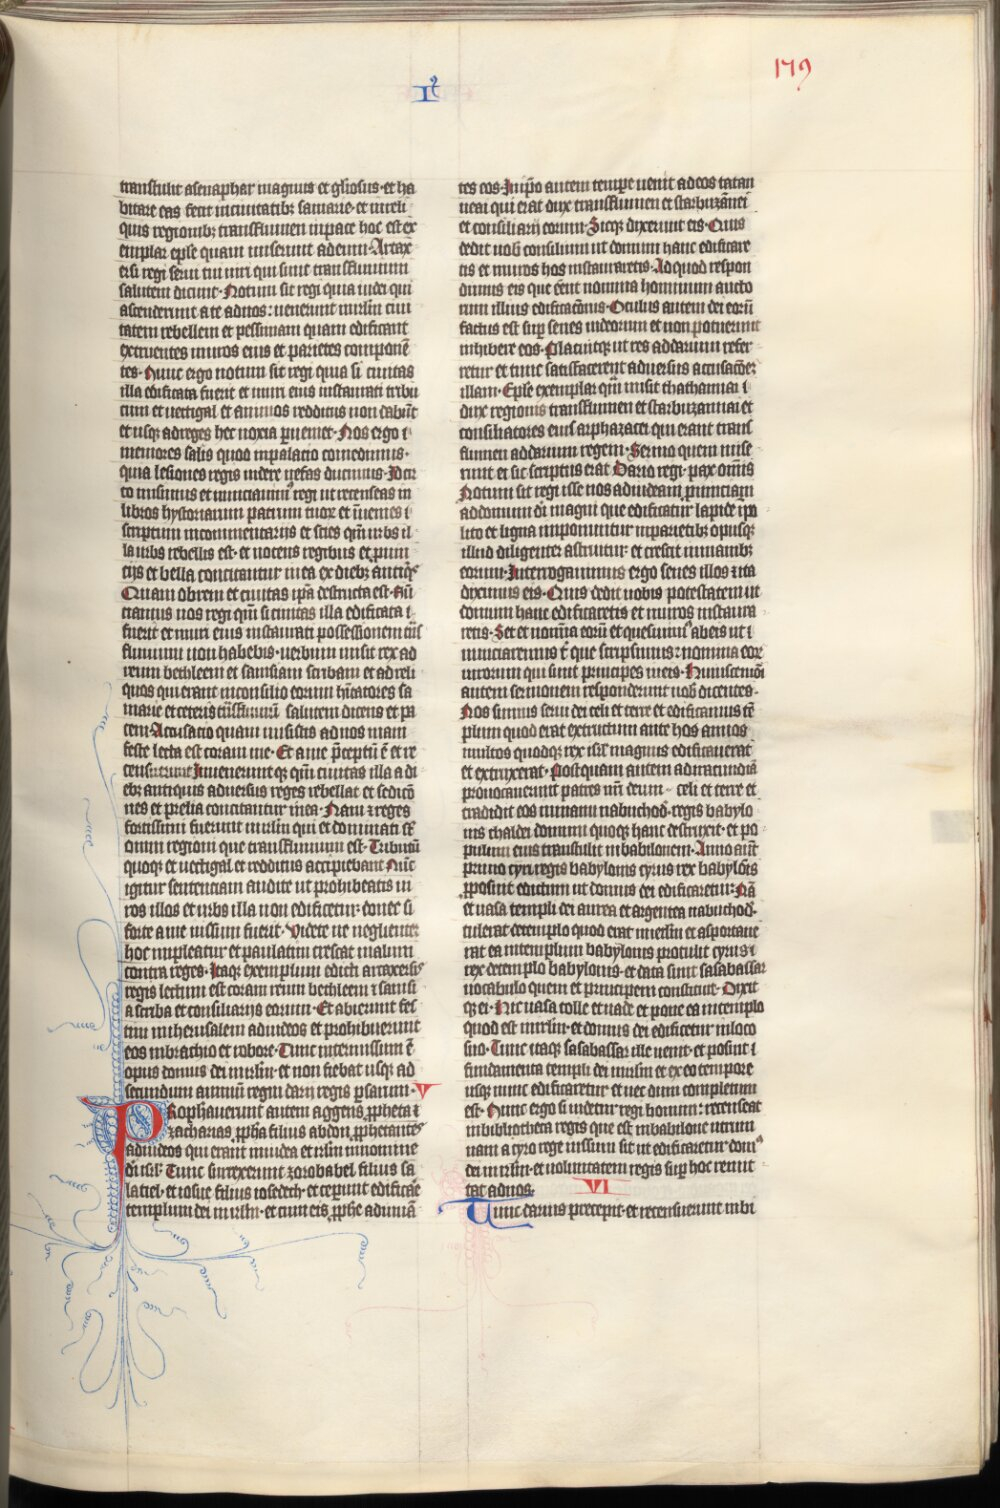 179
I
transtulit asenaphar magnus et gl̄iosus· et ha
bitare eas fecit in ciuitatibꝫ samarie· et in reli
quis regionibꝫ transflumen in pace hoc est ex
emplar ep̄le quam miserunt ad eum· Artax
ersi regi serui tui uiri qui sunt transfluuium
salutem dicunt· Notum sit regi quia iudei qui
ascenderunt a te ad nos: uenerunt in irl̄m ciui
tatem rebellem et pessimam quam edificant
extruentes muros eius et parietes componē
tes· Nunc ergo notum sit regi quia si ciuitas
illa edificata fuerit et muri eius instaurati tribu
tum et uectigal et annuos redditus non dabūt
et usqꝫ ad reges hec noxia ꝑueniet· Nos ergo ī
memores salis quod in palatio comedimus·
quia lesiones regis uidere nefas ducimus· Idcir
co misimus et nunciauimꝰ regi ut recenseas in
libros hystoriarum patrum tuorꝫ et īuenies ī
scriptum in commentarijs et scies qm̄ urbs il
la urbs rebellis est· et nocens regibus et ꝓuin
cijs et bella concitantur in ea ex diebꝫ antiqⁱs
Quam obrem et ciuitas ip̄a destructa est· Nū
ciamus nos regi qm̄ si ciuitas illa edificata ī
fuerit et muri eius instaurati possessionem trāſ
fluuium non habebis· uerbum misit rex ad
reum betheleem et samsiam scribam et ad reli
quos qui erant in consilio eorum hīītatores sa
marie et ceteris trāsfluuiū salutem dicens et pa
cem· Accusatio quam misistis ad nos mani
feste lecta est coram me· Et a me p̄ceptū ē et re
censuerunt Inuenerunt qꝫ qm̄ ciuitas illa a di
ebꝫ antiquis aduersus reges rebellat et sedicō
nes et prelia concitantur in ea· Nam ⁊ reges
fortissimi fuerunt in irl̄m qui et dominati sē
omni regioni que transfluuium est· Tributū
quoqꝫ et uectigal et redditus accipiebant Nūc
igitur sententiam audite ut prohibeatis ui
ros illos et urbs illa non edificetur· donec si
forte a me iussum fuerit· Videte ne neglienter
hoc impleatur et paulatim crescat malum
contra reges· Itaqꝫ exemplum edicti artaxersis
regis lectum est coram reum betheleem ⁊ samsi
a scriba et consiliarijs eorum· Et abierunt fes
tini in iherusalem ad iudeos et prohibuerunt
eos in brachio et robore· Tunc intermissum ē
opus domus dei in irl̄m· et non fiebat usqꝫ ad
secundum annum regni darii regis ꝑsarum· V
PRophauerunt autem aggeus ꝓpheta ⁊
zacharias ꝓpha filius abdon ꝓphetantes
ad iudeos qui erant in iudea et irl̄m in nomine
dī isl̄· Tunc surrexerunt zorobabel filius sa
latiel· et iosue filius iosedech· et ceperunt edificāe
templum dei in irl̄m· et cum eis ꝓphe adiuuā
tes eos· In ip̄o autem tempore uenit ad eos tatan
nai qui erat dux transflumen et starbuzannei
et consiliarii eorum· Sicqꝫ dixerunt eis· Quis
dedit uob̄ consilium ut domum hanc edificare
tis et muros hos instauraretis· Ad quod respon
dimus eis que eēnt nomina hominum aucto
rum illius edificatōnis· Oculus autem dei eorū
factus est suꝑ senes iudeorum et non potuerunt
inhibere eos· Placuitqꝫ ut res ad darium refer
retur et tunc satisfacerent aduersus accusacōeꝫ
illam· Ep̄le exemplar qm̄ misit thathannai ī
dux regionis transflumen et starbuzannai et
consiliatores eius arphazacei qui erant trans
flumen ad darium regem· Sermo quem mise
runt ei sic scriptus erat Dario regi· pax om̄is
Notum sit regi isse nos ad iudeam ꝓuinciam
ad domum dī magni que edificatur lapide ip̄o
lito et ligna imponuntur in parietibꝫ opusqꝫ
illud diligenter astruitur· et crescit in manibꝫ
eorum· Interrogauimus ergo senes illos ⁊ ita
diximus eis· Quis dedit uobis potestatem ut
domum hanc edificaretis et muros instaura
retis· Set et nomīa eorū et quesiuimꝰ ab eis ut ī
nunciaremus t̄ que scripsimus: nomina eorꝫ
uirorum qui sunt principes in eis· Huiuscemōi
autem sermonem responderunt nob̄ dicentes·
Nos sumus serui dei celi et terre et edificamus tē
plum quod erat extructum ante hos annos
multos quodqꝫ rex isl̄ magnus edificauerat
et extruxerat· Postquam autem ad iracundiā
prouocauerunt patres nr̄i deum celi et terre et
tradidit eos in manu nabuchod· regis babylo
nis chaldei domum quoqꝫ hanc destruxit· et po
pulum eius transtulit in babilonem· Anno aūt
primo cyri regis babylonis cyrus rex babylōis
ꝓposuit edictum ut domus dei edificaretur: Nā
et uasa templi dei aurea et argentea nabuchod·
tulerat de templo quod erat in irl̄m et asportaue
rat ea in templum babylonis protulit cyrus ī
rex de templo babylonis· et data sunt sasabassar
uocabulo quem et principem constituit· Dixit
qꝫ ei· Hec uasa tolle et uade et pone ea in templo
quod est in irl̄m· et domus dei edificetur in loco
suo· Tunc itaqꝫ sasabassar ille uenit· et posuit ī
fundamenta templi dei in irl̄m et ex eo tempore
usqꝫ nunc edificaretur et nec dum completum
est· Nunc ergo si uidetur regi bonum: recenseat
in bibliotheca regis que est in babilone utrum
nam a cyro rege iussum sit ut edificaretur domꝰ
dei in irl̄m· et uoluntatem regis suꝑ hoc remit
tat ad nos· VI
Tunc darius precepit· et recensuerunt in bi